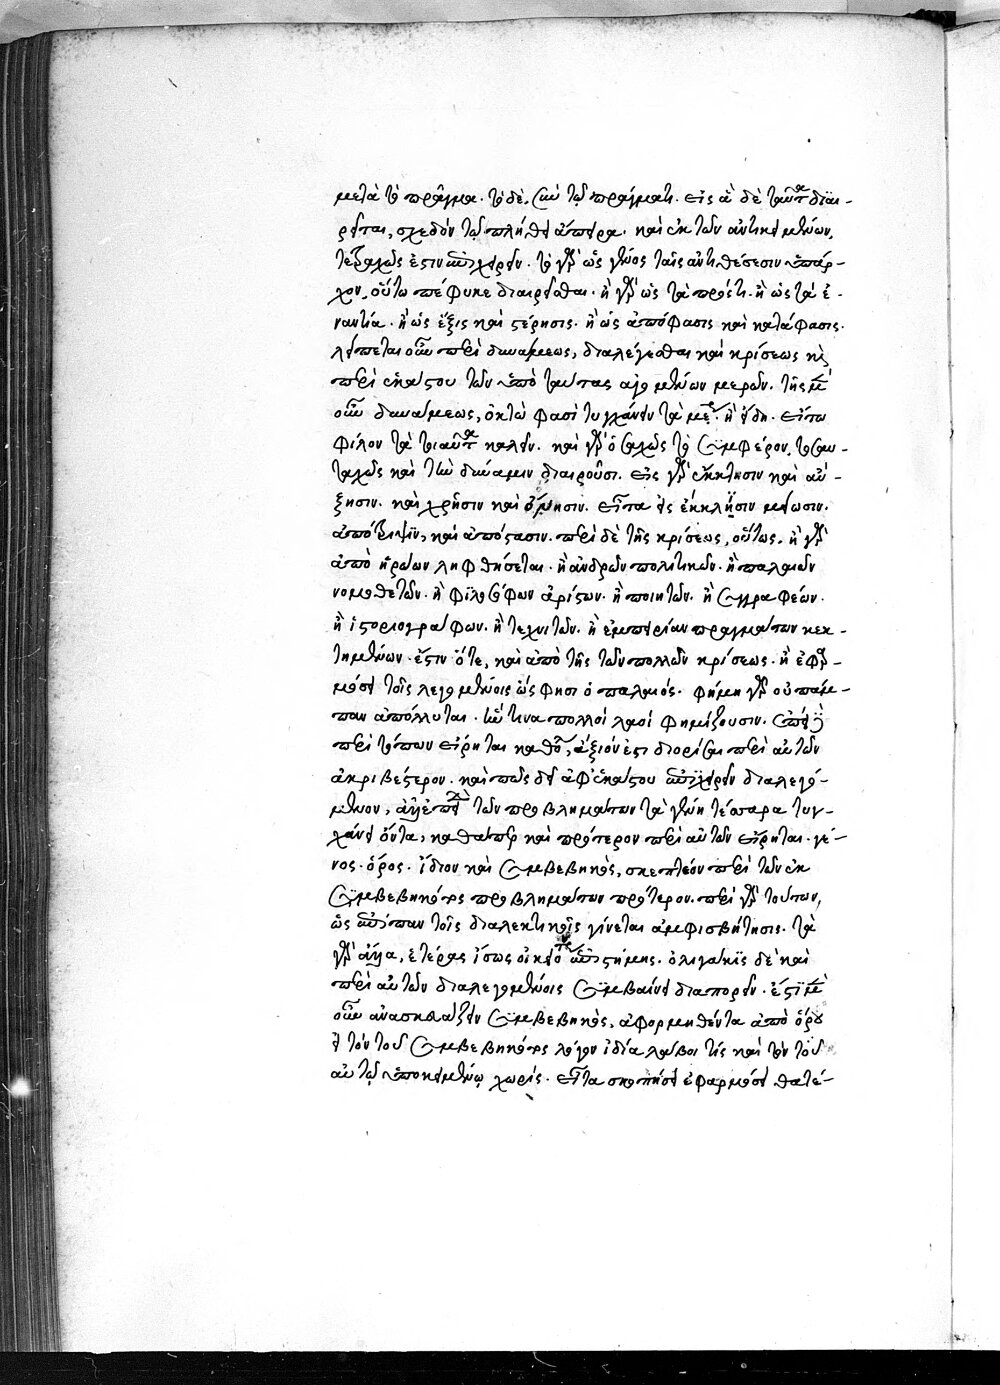 μετὰ τὸ πρᾶγμα. τὸ δὲ, σὺν τῷ πράγματι. εἰς ἃ δὲ ταῦτα διαι-
ρεῖται, σχεδὸν τῷ πλήθει ἄπειρα. καὶ ἐκ τῶν ἀντικειμένων,
τετραχῶς ἔστιν ἐπιχειρεῖν. τὸ γὰρ ὡς γένος ταῖς ἀντιθέσεσιν ὑπάρ-
χον, οὕτω πέφυκε διαιρεῖσθαι. ἢ γὰρ ὡς τὰ πρός τι. ἢ ὡς τὰ ἐ-
ναντία. ἢ ὡς ἕξις καὶ στέρησις. ἢ ὡς ἀπόφασις καὶ κατάφασις.
λείπεται οὖν περὶ δυνάμεως, διαλέγεσθαι καὶ κρίσεως καὶ
περὶ ἑκάστου τῶν ὑπὸ ταύτας ἀγομένων μερῶν. τῆς μὲν
οὖν δυνάμεως, ὀκτώ φασι τυγχάνειν τὰ μέρη ἢ εἴδη. εἴτω
φίλον τὰ τοιαῦτα καλεῖν. καὶ γὰρ ὁσαχῶς τὸ συμφέρον, τοσαυ-
ταχῶς καὶ τὴν δύναμιν διαιροῦσι. εἰς γὰρ ἔκκτησιν καὶ αὔ-
ξησιν. καὶ χρῆσιν καὶ ὄνησιν. εἶτα εἰς ἔκκλησιν μείωσιν.
ἀπόληψιν, καὶ ἀπόστασιν. περὶ δὲ τῆς κρίσεως, οὕτως. ἢ γὰρ
ἀπὸ ἡρώων ληφθήσεται. ἢ ἀνδρῶν πολιτικῶν. ἢ παλαιῶν
νομοθετῶν. ἢ φιλοσόφων ἀρίστων. ἢ ποιητῶν. ἢ συγγραφέων.
ἢ ἱστοριογράφων. ἢ τεχνιτῶν. ἢ ἐμπειρίαν πραγμάτων κεκ-
τημένων. ἔστιν ὅτε, καὶ ἀπὸ τῆς τῶν πολλῶν κρίσεως. ἢ ἐφαρ-
μόσει τοῖς λεγομένοις ὥς φησι ὁ παλαιός. φήμη γὰρ οὐ πάμ-
παν ἀπόλλυται. ἥν τινα πολλοὶ λαοὶ φημίζουσιν. ἐπεὶ δὲ
περὶ τόπων εἴρηται καθόλου, ἄξιόν ἐστι διορίσαι περὶ αὐτῶν
ἀκριβέστερον. καὶ πῶς δεῖ ἀφ' ἑκάστου ἐπιχειρεῖν διαλεγό-
μενον, ἀλλ' ἐπεὶ τῶν προβλημάτων τὰ γένη τέσσαρα τυγ-
χάνει ὄντα, καθάπερ καὶ πρότερον περὶ αὐτῶν εἴρηται. γέ-
νος. ὅρος. ἴδιον καὶ συμβεβηκὸς, σκεπτέον περὶ τῶν ἐκ
συμβεβηκότος προβλημάτων πρότερον. περὶ γὰρ τούτων,
ὡς ἐπίπαν τοῖς διαλεκτικοῖς γίνεται ἀμφισβήτησις. τὰ
γὰρ ἄλλα, ἑτέρας ἴσως οἰκεῖα τῆς ἐπιστήμης. ὀλιγάκις δὲ καὶ
περὶ αὐτῶν διαλεγομένοις συμβαίνει διαπορεῖν. ἔστι μὲν
οὖν ἀνασκευάζειν συμβεβηκὸς, ἀφορμηθέντα ἀπὸ ὅρου
εἰ τὸν τοῦ συμβεβηκότος λόγον ἰδίᾳ λάβοι τίς καὶ τὸν τοῦ
αὐτῷ ὑποκειμένῳ χωρίς. εἶτα σκοπήσει ἐφαρμόσει θατέ-